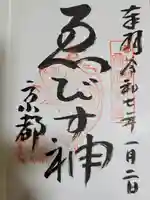 奉拝令和七年一月二日
ゑびす神
京都